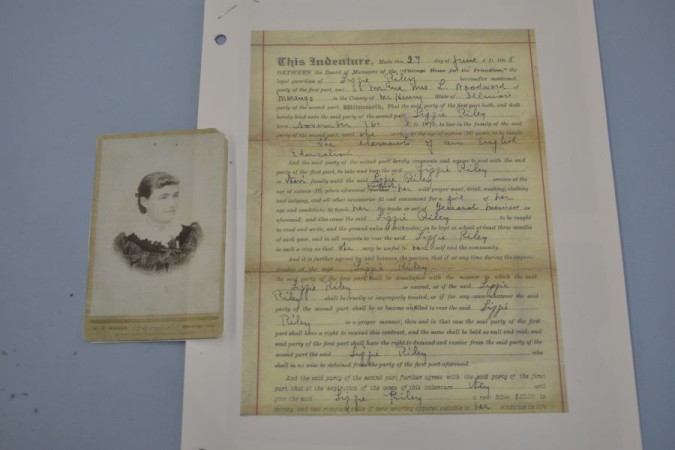 This Indenture, Made this 27 day of June A. D. 188
BETWEEN the Board of Managers of the "Chicago Home for the Friendless," the
legal guardian of Lizzie Riley hereinafter mentioned,
party of the first part, and Mr. and Mrs. L. Woodward of
Marengo in the County of McHenry State of Illinois
party of the second part, WITNESSETH, That the said party of the first part hath, and doth
hereby bind unto the said party of the second part Lizzie Riley
born November to live in the family of the said
party of the second part, until she to the age of eighteen (18) years, to be taught
the elements of an English
Education
And the said party of the second part hereby covenants and agrees to and with the said
party of the first part, to take and keep the said Lizzie Riley
in their family until the said Lizzie Riley arrives at the
age of eighteen (18) years aforesaid her with proper meat, drink, washing, clothing
and lodging, and all other necessaries fit and convenient for a girl of her
age and condition; to teach her the trade or art of General housework
aforesaid, and also cause the said Lizzie Riley to be taught
to read and write, and the ground rules of arithmetic; to be kept at school at least three months
of each year, and in all respects to rear the said Lizzie Riley
in such a way as that she may be useful to her self and the community.
And it is further agreed by and between the parties, that if at any time during the appren-
ticeship of the said Lizzie Riley
the said party of the first part shall be dissatisfied with the manner in which the said
Lizzie Riley is reared, or if the said Lizzie
Riley shall be cruelly or improperly treated, or if for any cause whatever the said
party of the second part shall be or become unfitted to rear the said Lizzie
Riley in a proper manner; then and in that case the said party of the first
part shall have a right to rescind this contract, and the same shall be held as null and void; and
said party of the first part shall have the right to demand and receive from the said party of the
second part the said Lizzie Riley who
shall in no wise be detained from the party of the first part aforesaid.
And the said party of the second part further agrees with the said party of the first
part, that at the expiration of the term of this indenture they will
give the said Lizzie Riley a new Bible $20.00 in
money, and two complete suits of new wearing apparel suitable to her condition in life